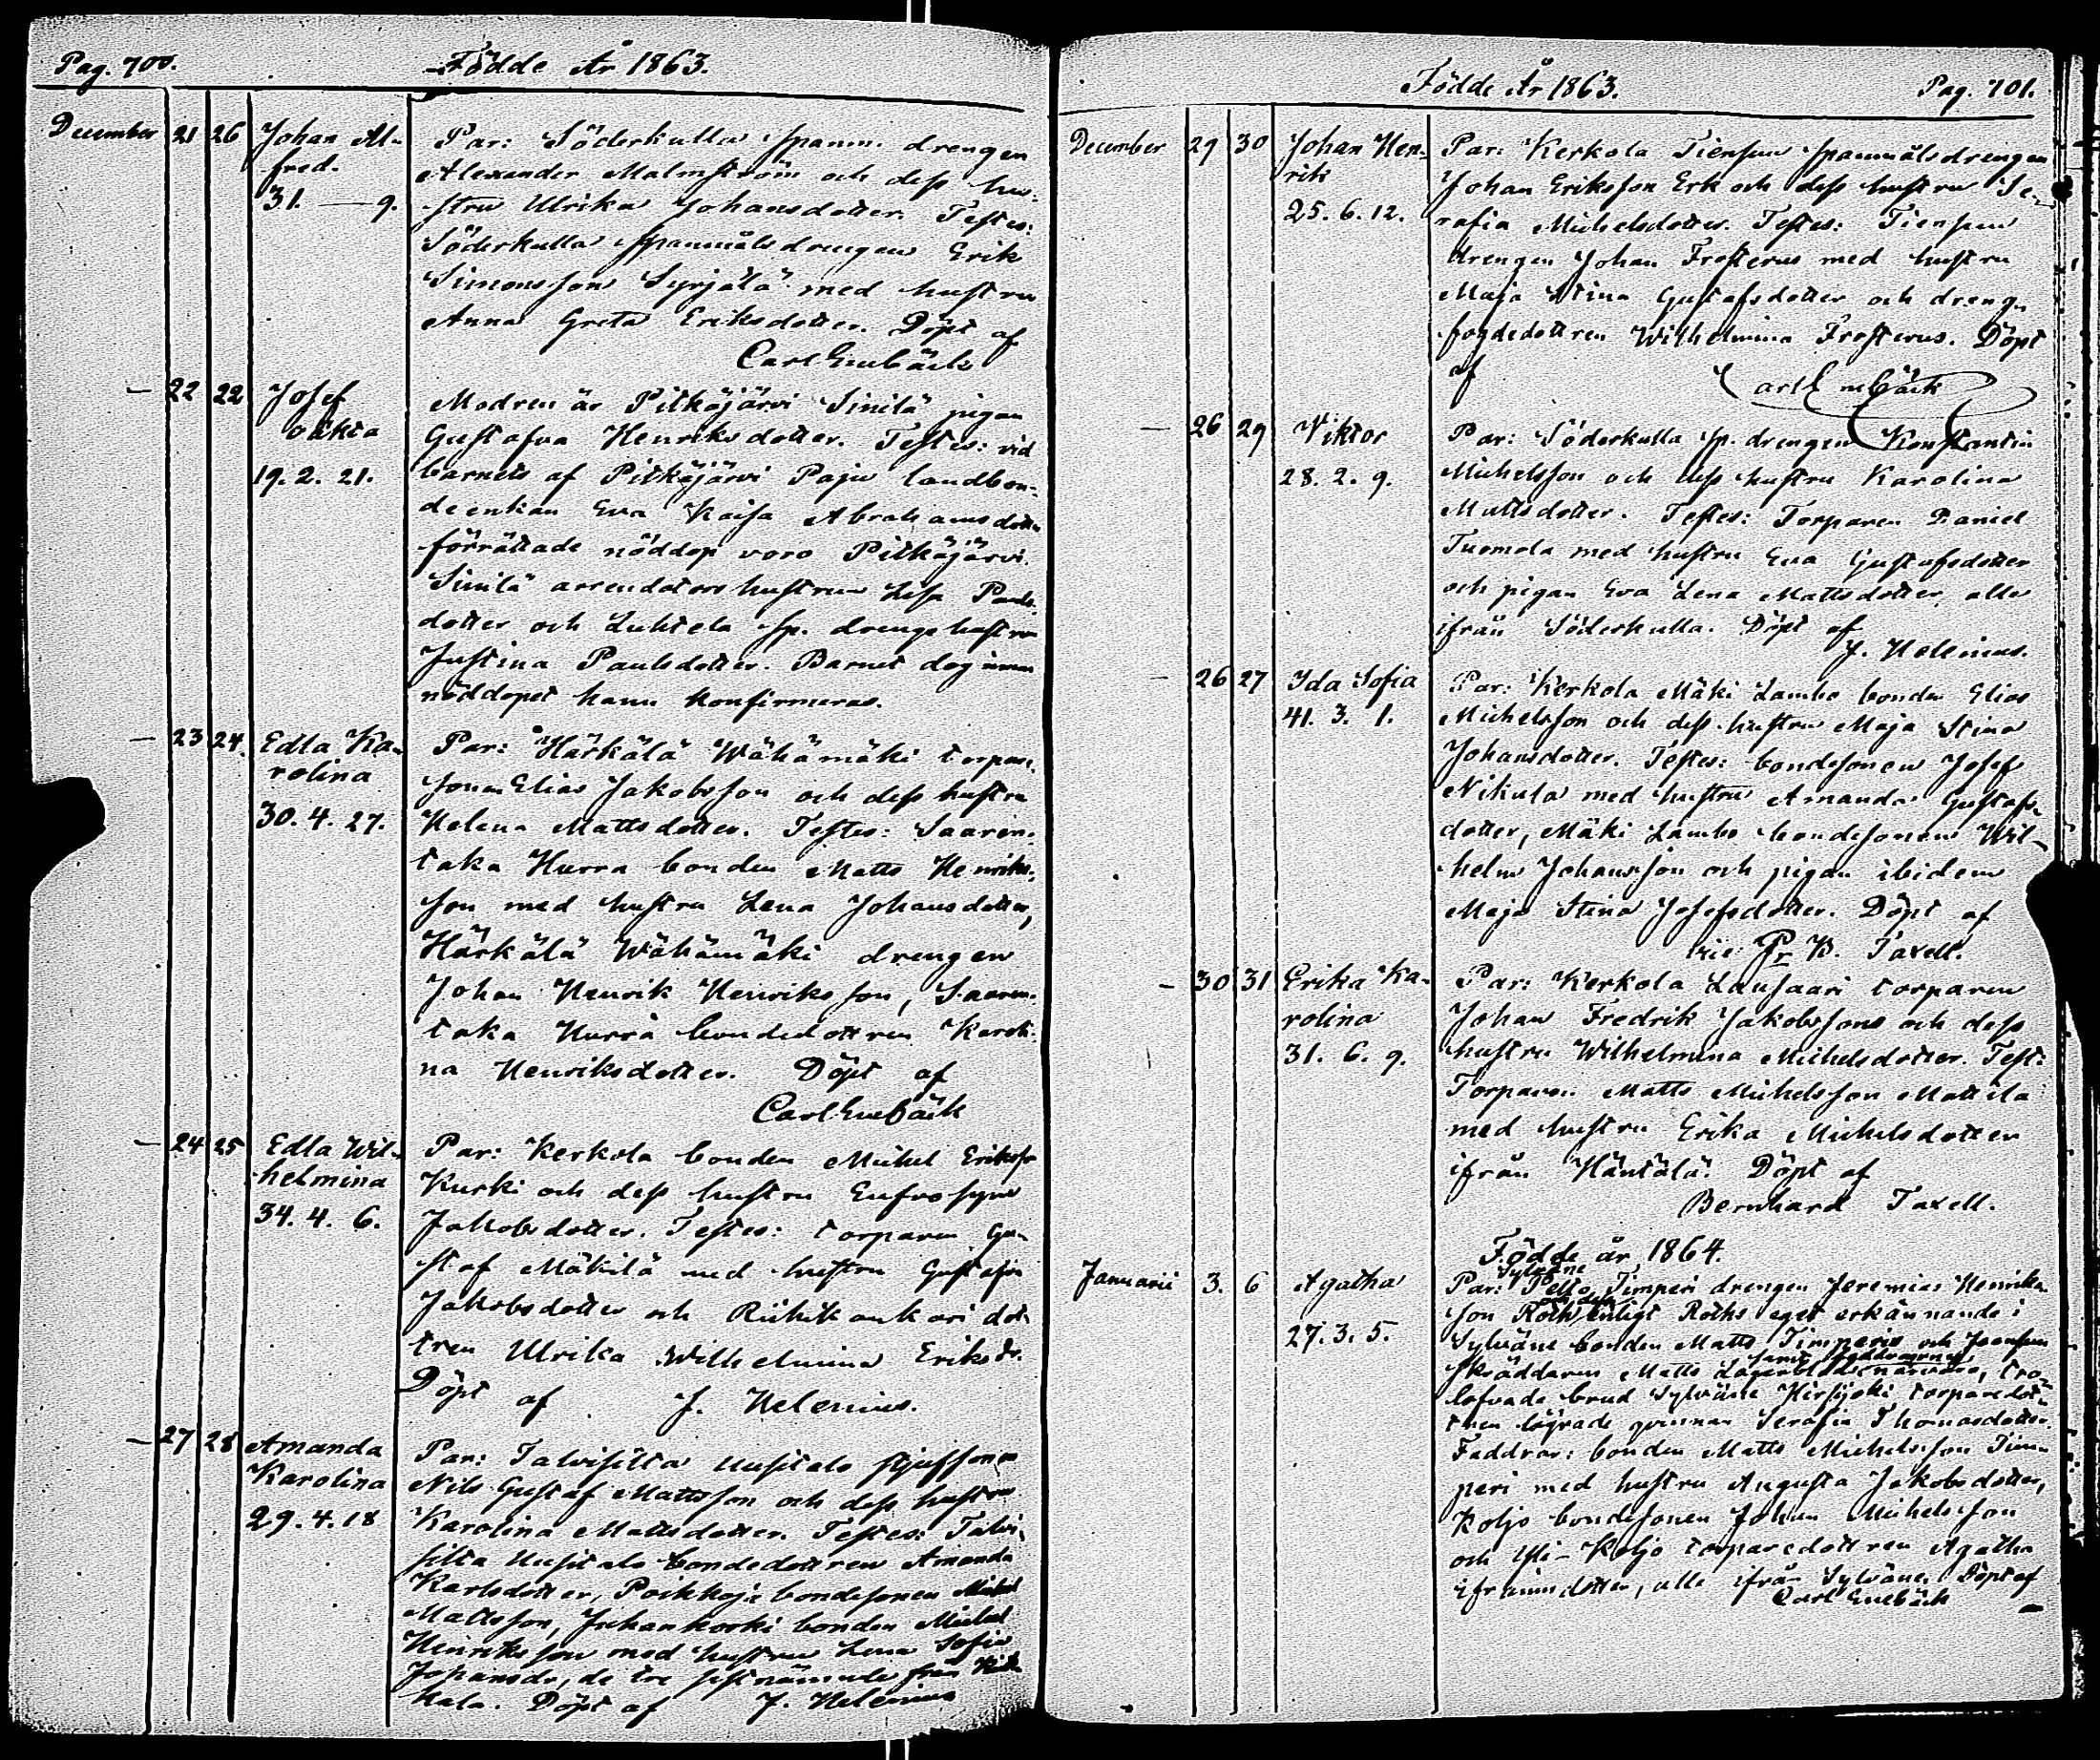 Pag. 700.
Födde År 1863.
December 21 26 Johan Al-
fred.
31. — 9.
Par: Söderkulla spanm. drengen
Alexander Malmström och dess hu-
stru Ulrika Johansdotter. Testes:
Söderkulla spanmåls drengen Erik
Simonsson Syrjälä med hustru
Anna Greta Eriksdotter. Döpt af
Carl Enebäck
— 22 22 Josef
oäkta
19. 2. 21.
Modren är Pitkäjärvi Sinilä pigan
Gustafva Henriksdotter. Testes: vid
barnets af Pitkäjärvi Paju landbon-
deenkan Eva Kaisa Abrahamsdotter
förrättade nöddop voro Pitkäjärvi
Sinilä arrendators hustrun Lisa Pauls-
dotter och Luhtela sp. drengs hustrun
Justina Paulsdotter. Barnet dog innan
nöddopet hann konfirmeras.
— 23 24. Edla Ka-
rolina
30. 4. 27.
Par: Härkälä Wähämäki torpare
sonen Elias Jakobsson och dess hustru
Helena Mattsdotter. Testes: Saaren-
taka Hurra bonden Matts Henriks-
son med hustru Lena Johansdotter,
Härkälä Wähämäki drengen
Johan Henrik Henriksson, Saaren-
taka Hurra bondedottren Karoli-
na Henriksdotter. Döpt af
Carl Enebäck
— 24 25 Edla Wil-
helmina
34. 4. 6.
Par: Kerkola bonden Michel Eriksson
Kurki och dess hustru Eufrosyne
Jakobsdotter. Testes: torparen Gu-
staf Mäkilä med hustru Gustafva
Jakobsdotter och Riihikankari dot-
tren Ulrika Wilhelmina Eriksdr.
Döpt af J. Helenius.
— 27 28 Amanda
Karolina
29. 4. 18
Par: Talvisilta Uusitalo stjufsonen
Nils Gustaf Mattsson och dess hustru
Karolina Mattsdotter. Testes: Talvi-
silta Uusitalo bondedottren Amanda
Karlsdotter, Poikkoja bondesonen Michel
Mattsson, Juhankorki bonden Michel
Henriksson med hustru Lena Sofia
Johansdr, de tre sistnämnde från
Döpt af J. Helenius
Födde År 1863.
Pag. 701.
December 29 30 Johan Hen-
rik
25. 6. 12.
Par: Kerkola Tiensuu spanmålsdrengen
Johan Eriksson Erk och dess hustru Se-
rafia Michelsdotter. Testes: Tiensuu
drengen Johan Frosterus med hustru
Maja Stina Gustafsdotter och dreng-
fogdedottren Wilhelmina Frosterus. Döpt
af Carl Enebäck
— 26 29 Viktor
28. 2. 9.
Par: Söderkulla sp. drengen Konstantin
Michelsson och dess hustru Karolina
Mattsdotter. Testes: Torparen Daniel
Tuomola med hustru Eva Gustafsdotter
och pigan Eva Lena Mattsdotter alla
ifrån Söderkulla. Döpt af
J. Helenius.
— 26 27 Ida Sofia
41. 3. 1.
Par: Kerkola Mäki Lambo bonden Elias
Michelsson och dess hustru Maja Stina
Johansdotter. Testes: bondesonen Josef
Nikula med hustru Amanda Gustafs-
dotter, Mäki Lambo bondesonen Wil-
helm Johansson och pigan ibidem
Maja Stina Josefsdotter. Döpt af
B. Taxell.
— 30 31 Erika Ka-
rolina
31. 6. 9.
Par: Kerkola Lausaari torparen
Johan Fredrik Jakobsson och dess
hustru Wilhelmina Michelsdotter. Test:
Torparen Matts Michelsson Mattila
med hustru Erika Michelsdotter
ifrån Häntälä. Döpt af
Bernhard Taxell.
Födde år 1864.
Januarii 3. 6 Agatha
27. 3. 5.
Sylväne
Par: Timperi drengen Jeremias Henriks-
son Roth enligt Roths eget erkännande i
Sylväne bonden Matts Timperis och Joensuu
skräddaren Matts närvaro, tro-
lofvade brud Sylväne Hirsijoki torparedot-
tren lägrade qvinnan Serafia Thomasdotter.
Faddrar: bonden Matts Michelsson Tim-
peri med hustru Augusta Jakobsdotter,
Koljo bondesonen Johan Michelsson
och Yli-Koljo torparedottren Agatha
Efraimsdotter, alla ifrån Sylväne. Döpt af
Carl Enebäck